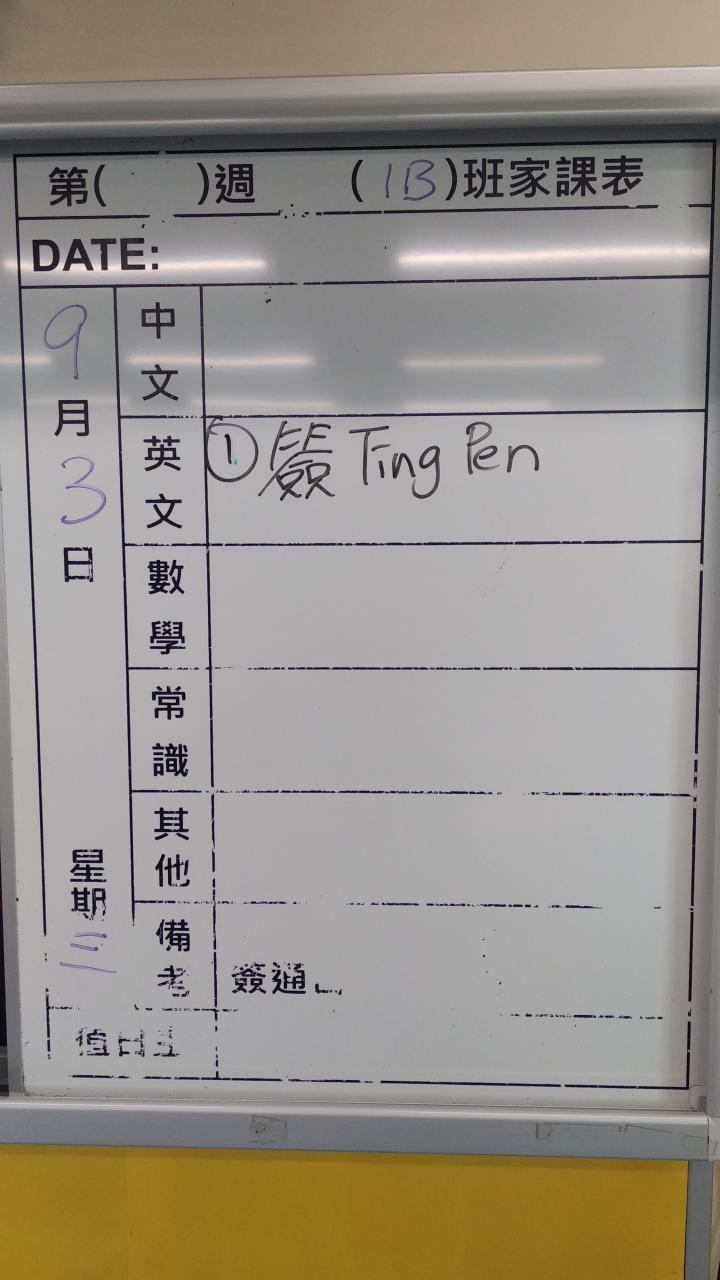 第( )週 (1B)班家課表
DATE:
9月3日
星期三
中文
英文 ①簽 Ting Pen
數學
常識
其他
備考 簽通
值日生